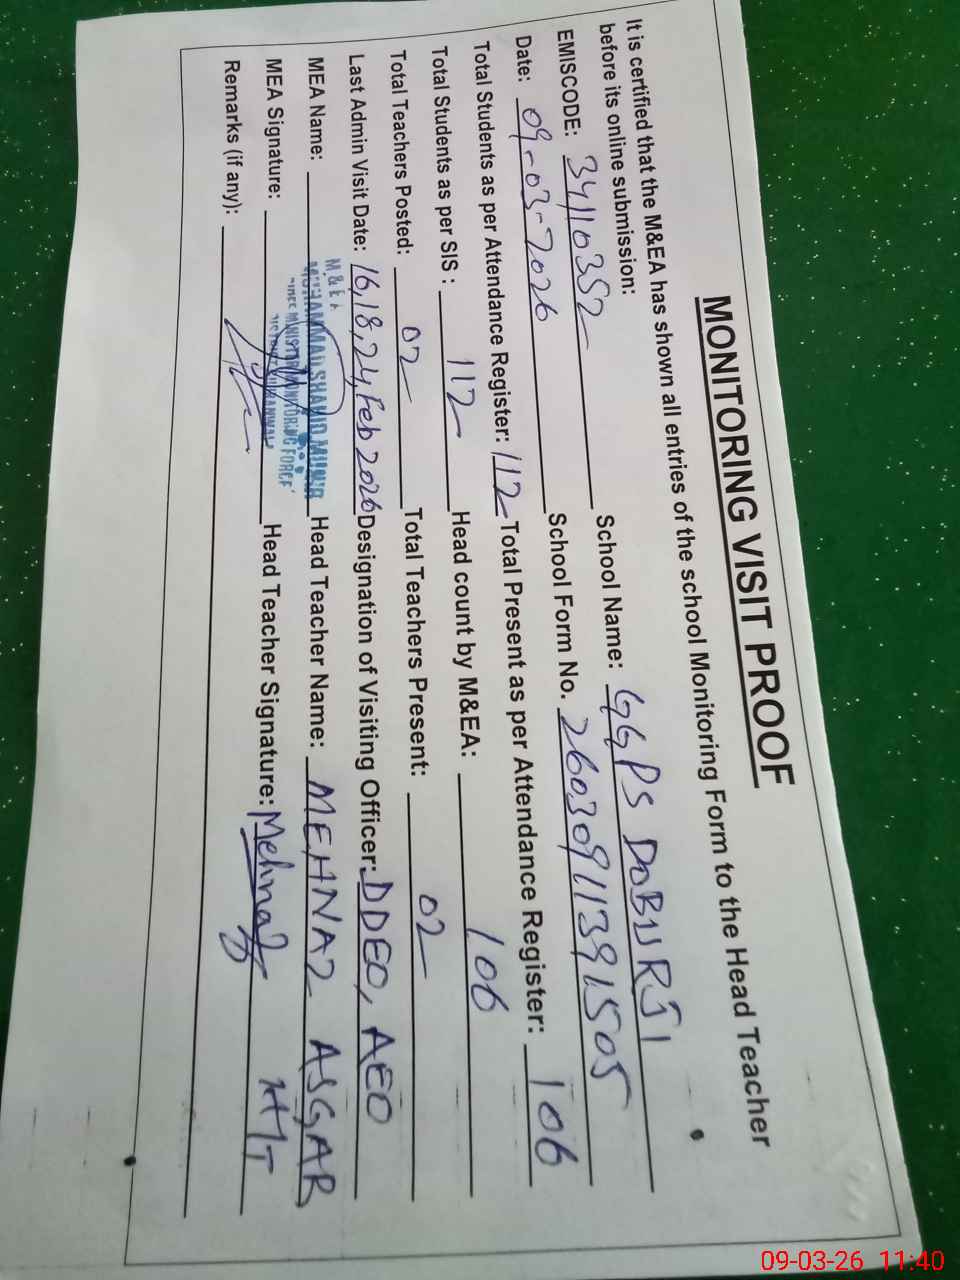 MONITORING VISIT PROOF
It is certified that the M&EA has shown all entries of the school Monitoring Form to the Head Teacher
before its online submission:
EMISCODE: 34110352 School Name: GGPS DOBURJI
Date: 09-03-2026 School Form No. 26030911391505
Total Students as per Attendance Register: 112 Total Present as per Attendance Register: 106
Total Students as per SIS : 112 Head count by M&EA: 106
Total Teachers Posted: 02 Total Teachers Present: 02
Last Admin Visit Date: 16,18,24,Feb 2026 Designation of Visiting Officer: DDEO, AEO
MEA Name: M&EA MUHAMMAD SHAHID MUNIR Head Teacher Name: MEHNAZ ASGAR
MEA Signature: MONITORING FORCE Head Teacher Signature: Mehnaz HT
Remarks (if any):
09-03-26 11:40